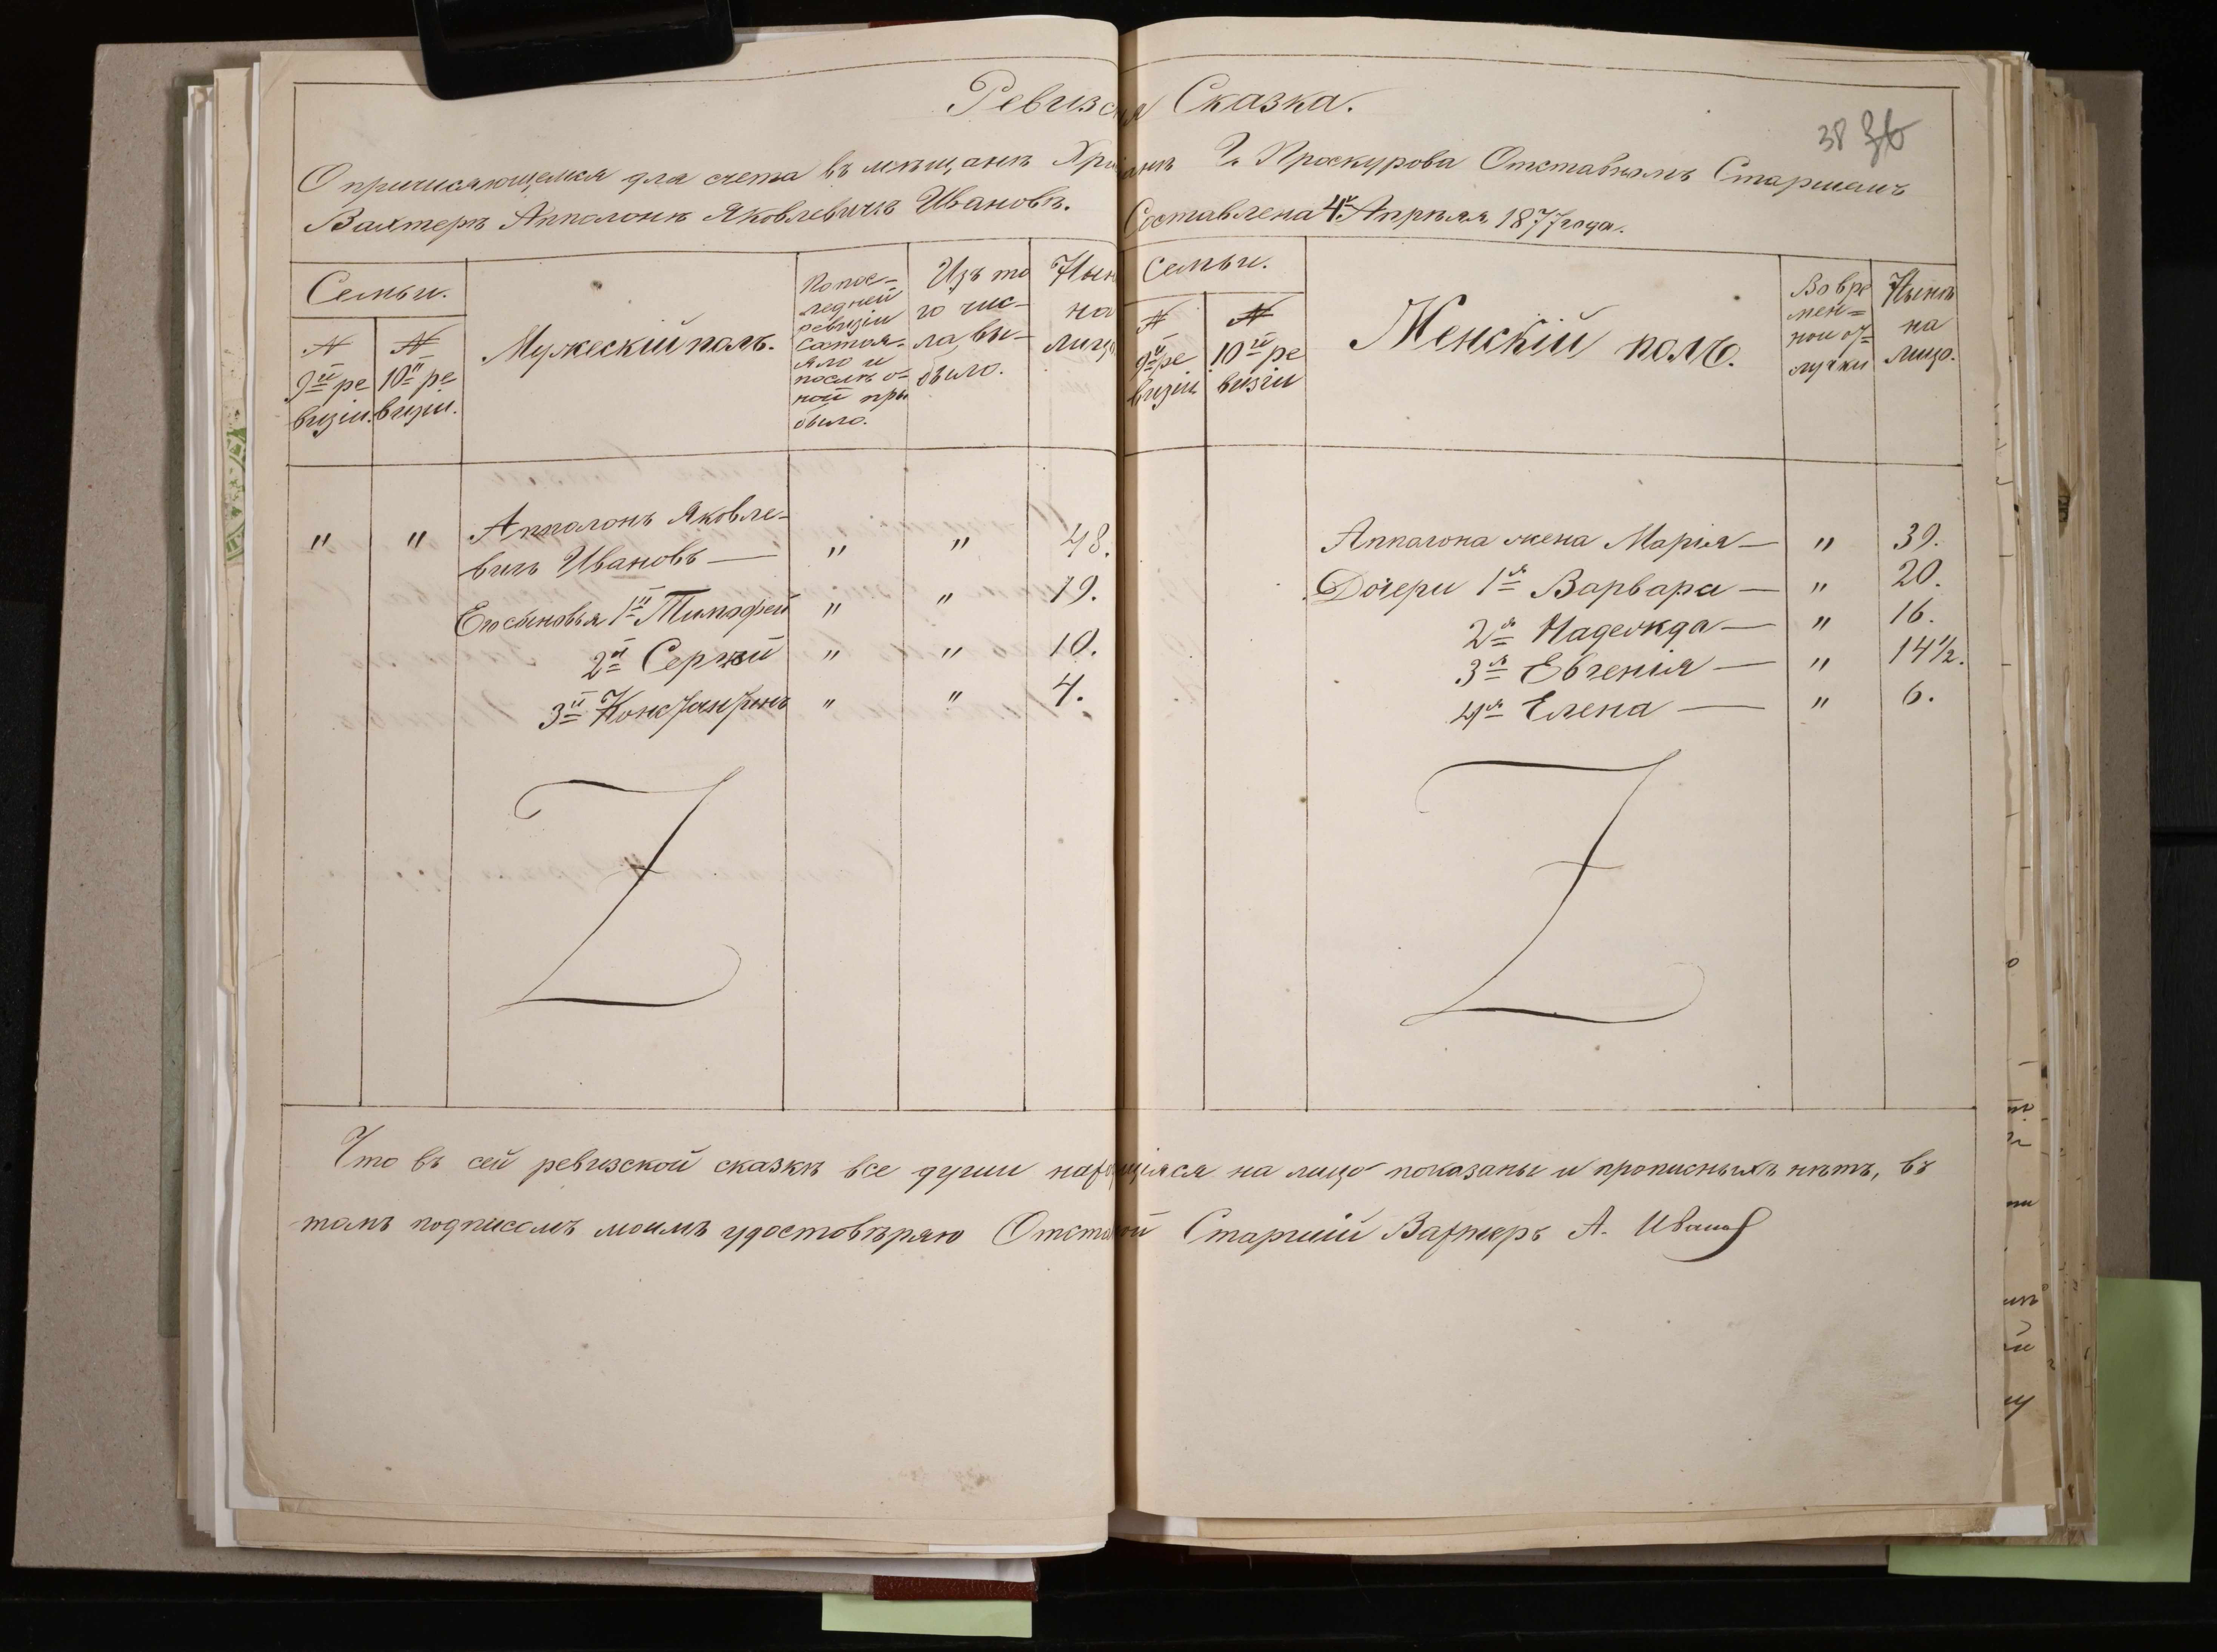 Ревизская Сказка.
38 36
О причисляющемся для счета въ мѣщанѣ Христіанѣ Г. Проскурова Отставномъ Старшемъ
Вахтерѣ Апполонѣ Яковлевичѣ Ивановѣ. Составлена 4го Апрѣля 1877 года.
Семьи.
№ 9й ревизіи.
№ 10й ревизіи.
Мужескій полъ.
По послѣдней ревизіи состояло и послѣ оной прибыло.
Изъ того числа выбыло.
Нынѣ на лицо
Семьи.
№ 9й ревизіи
№ 10й ревизіи
Женскій полъ.
Во временной отлучки
Нынѣ на лицо.
" " Апполонъ Яковле-
вичъ Ивановъ — " " 48.
Его сыновья 1й Тимофей " " 19.
2й Сергѣй " " 10.
3й Константинъ " " 4.
Апполона жена Марія — " 39.
Дочери 1я Варвара — " 20.
2я Надежда — " 16.
3я Евгенія — " 14½.
4я Елена — " 6.
Что въ сей ревизской сказкѣ все души находящіяся на лицо показаны и прописныхъ нѣтъ, въ
томъ подписомъ моимъ удостовѣряю Отставной Старшій Вахтеръ А. Ивановъ